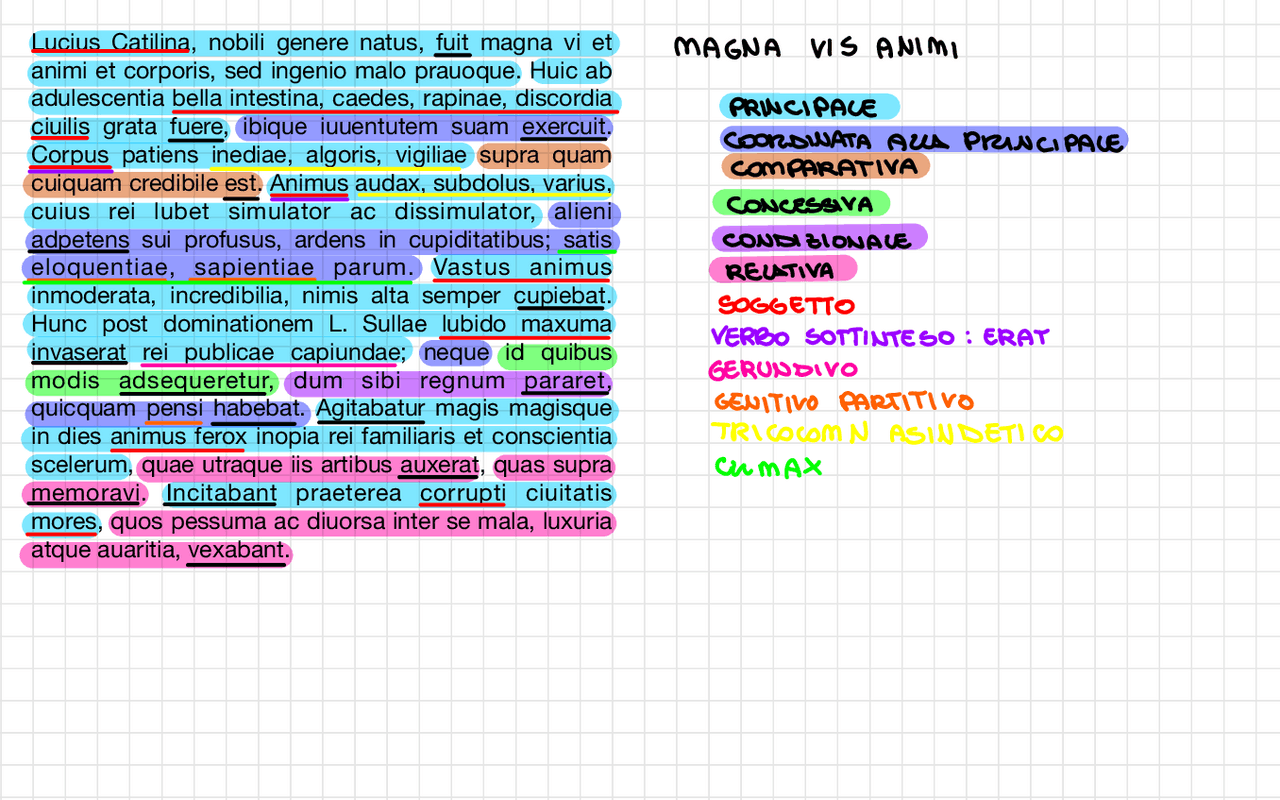 Lucius Catilina, nobili genere natus, fuit magna vi et
animi et corporis, sed ingenio malo prauoque. Huic ab
adulescentia bella intestina, caedes, rapinae, discordia
ciuilis grata fuere, ibique iuuentutem suam exercuit.
Corpus patiens inediae, algoris, vigiliae supra quam
cuiquam credibile est. Animus audax, subdolus, varius,
cuius rei lubet simulator ac dissimulator, alieni
adpetens sui profusus, ardens in cupiditatibus; satis
eloquentiae, sapientiae parum. Vastus animus
inmoderata, incredibilia, nimis alta semper cupiebat.
Hunc post dominationem L. Sullae lubido maxuma
invaserat rei publicae capiundae; neque id quibus
modis adsequeretur, dum sibi regnum pararet,
quicquam pensi habebat. Agitabatur magis magisque
in dies animus ferox inopia rei familiaris et conscientia
scelerum, quae utraque iis artibus auxerat, quas supra
memoravi. Incitabant praeterea corrupti ciuitatis
mores, quos pessuma ac diuorsa inter se mala, luxuria
atque auaritia, vexabant.
MAGNA VIS ANIMI
PRINCIPALE
COORDINATA ALLA PRINCIPALE
COMPARATIVA
CONCESSIVA
CONDIZIONALE
RELATIVA
SOGGETTO
VERBO SOTTINTESO : ERAT
GERUNDIVO
GENITIVO PARTITIVO
TRICOCOMN ASINDETICO
CLIMAX